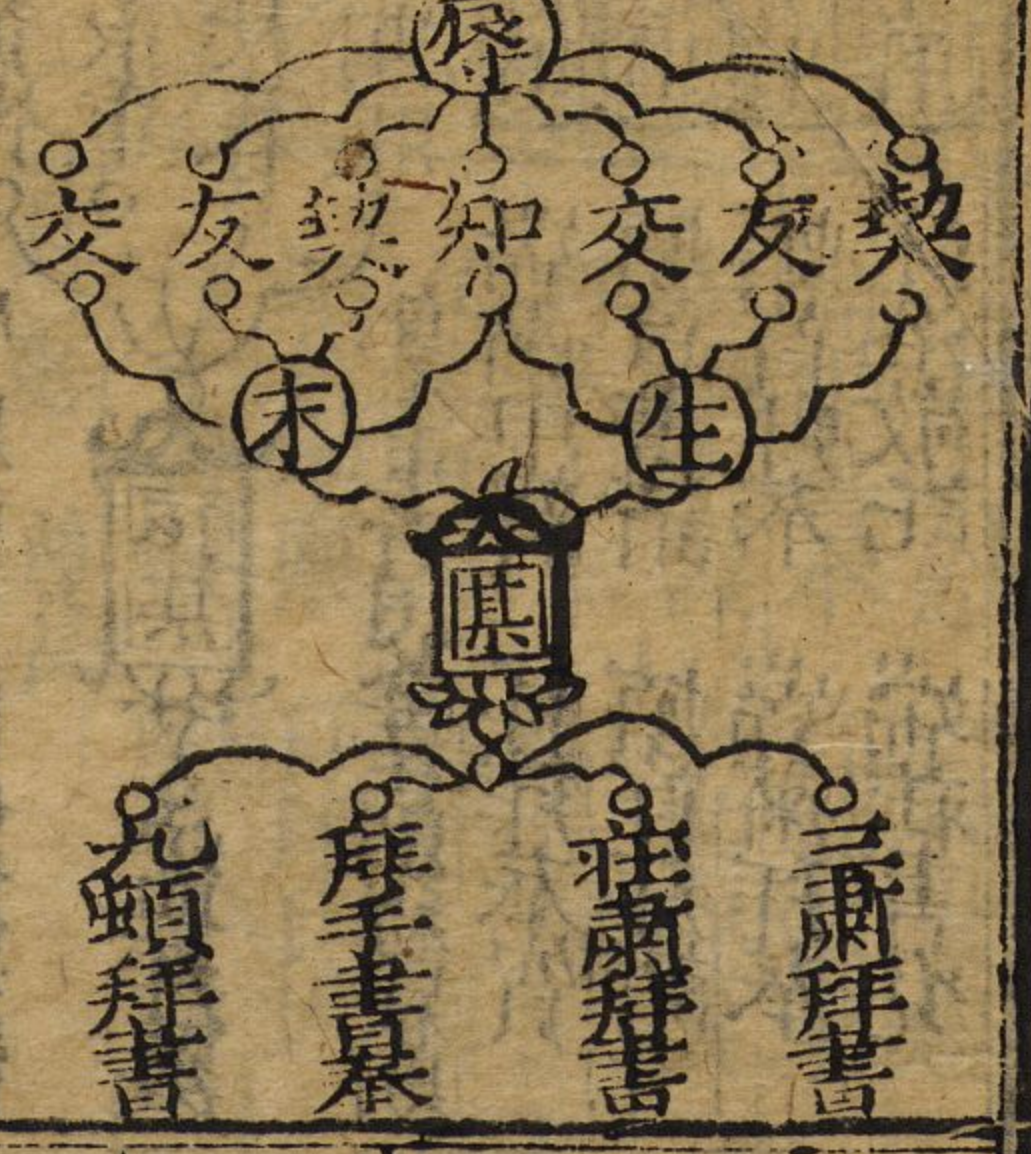 辱
契友交知契友交
生末
某
三肅拜書
莊肅拜書
拜手書奉
九頓拜書